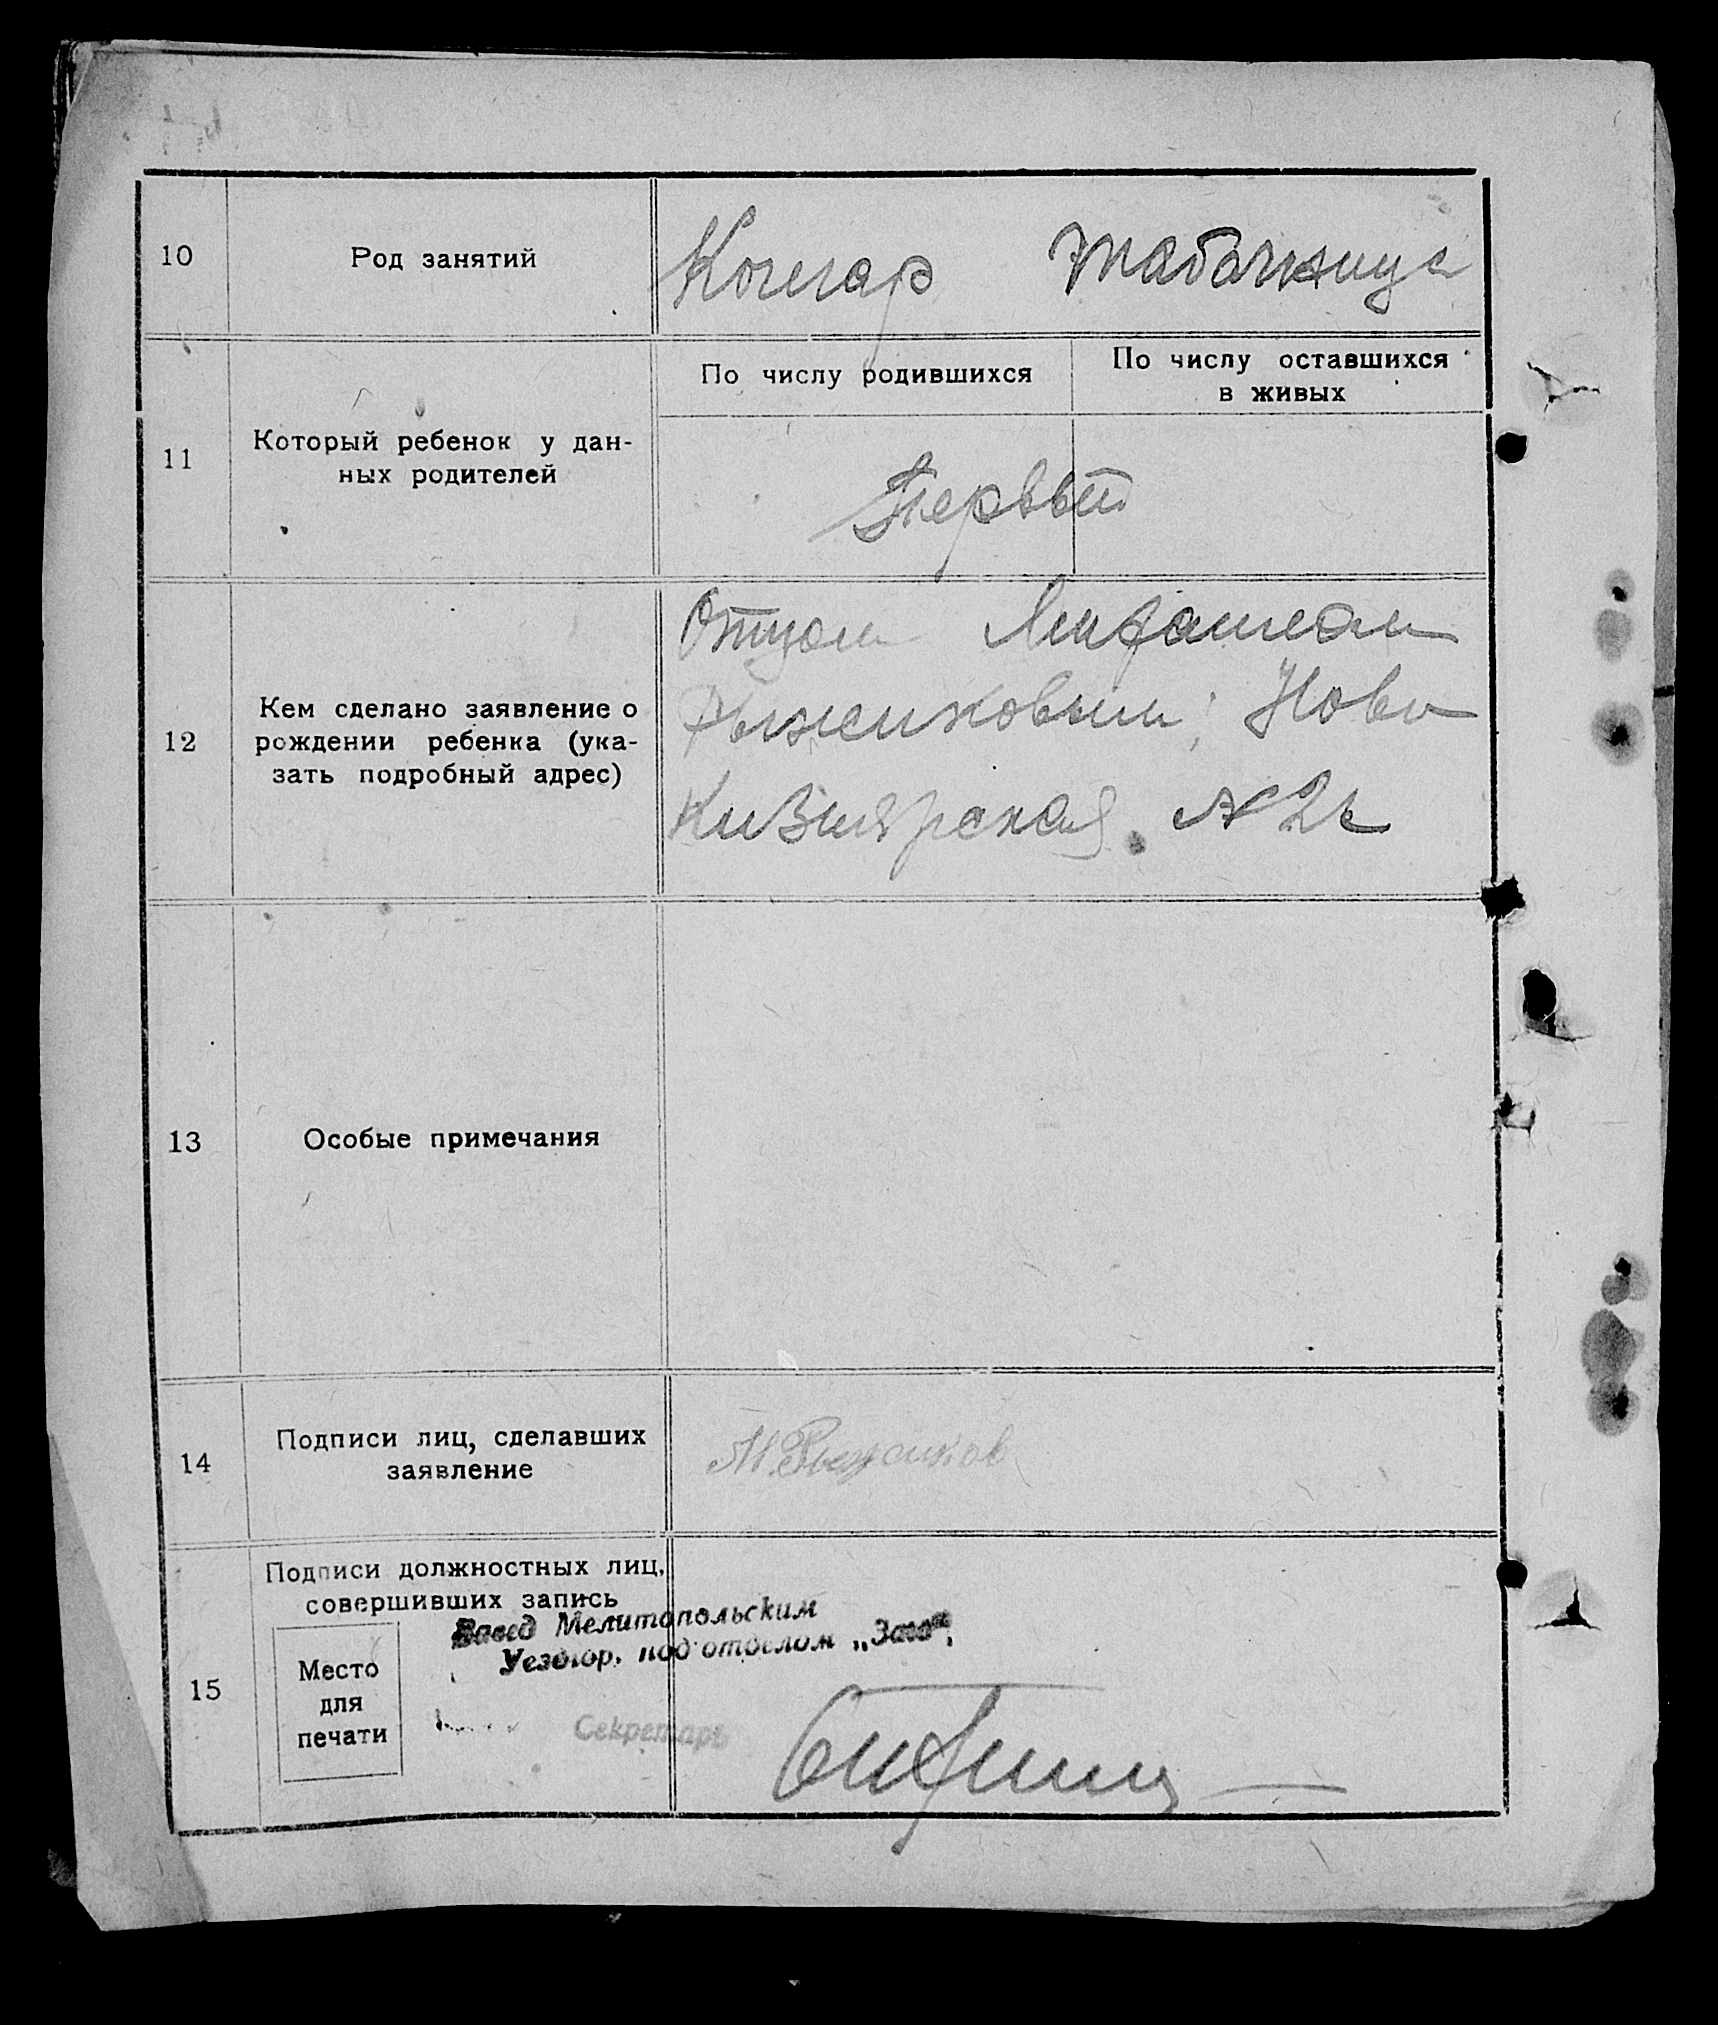 10
Род занятий
Кочегар Табачница
11
Который ребенок у дан-
ных родителей
По числу родившихся
По числу оставшихся
в живых
Первый
12
Кем сделано заявление о
рождении ребенка (ука-
зать подробный адрес)
Отцом
Рыжиковым, Ново
Кизиярская №
13
Особые примечания
14
Подписи лиц, сделавших
заявление
М. Рыжиков
15
Подписи должностных лиц,
совершивших запись
Место
для
печати
Завед Мелитопольским
Уездгор. подотделом „Загс“.
Секретарь